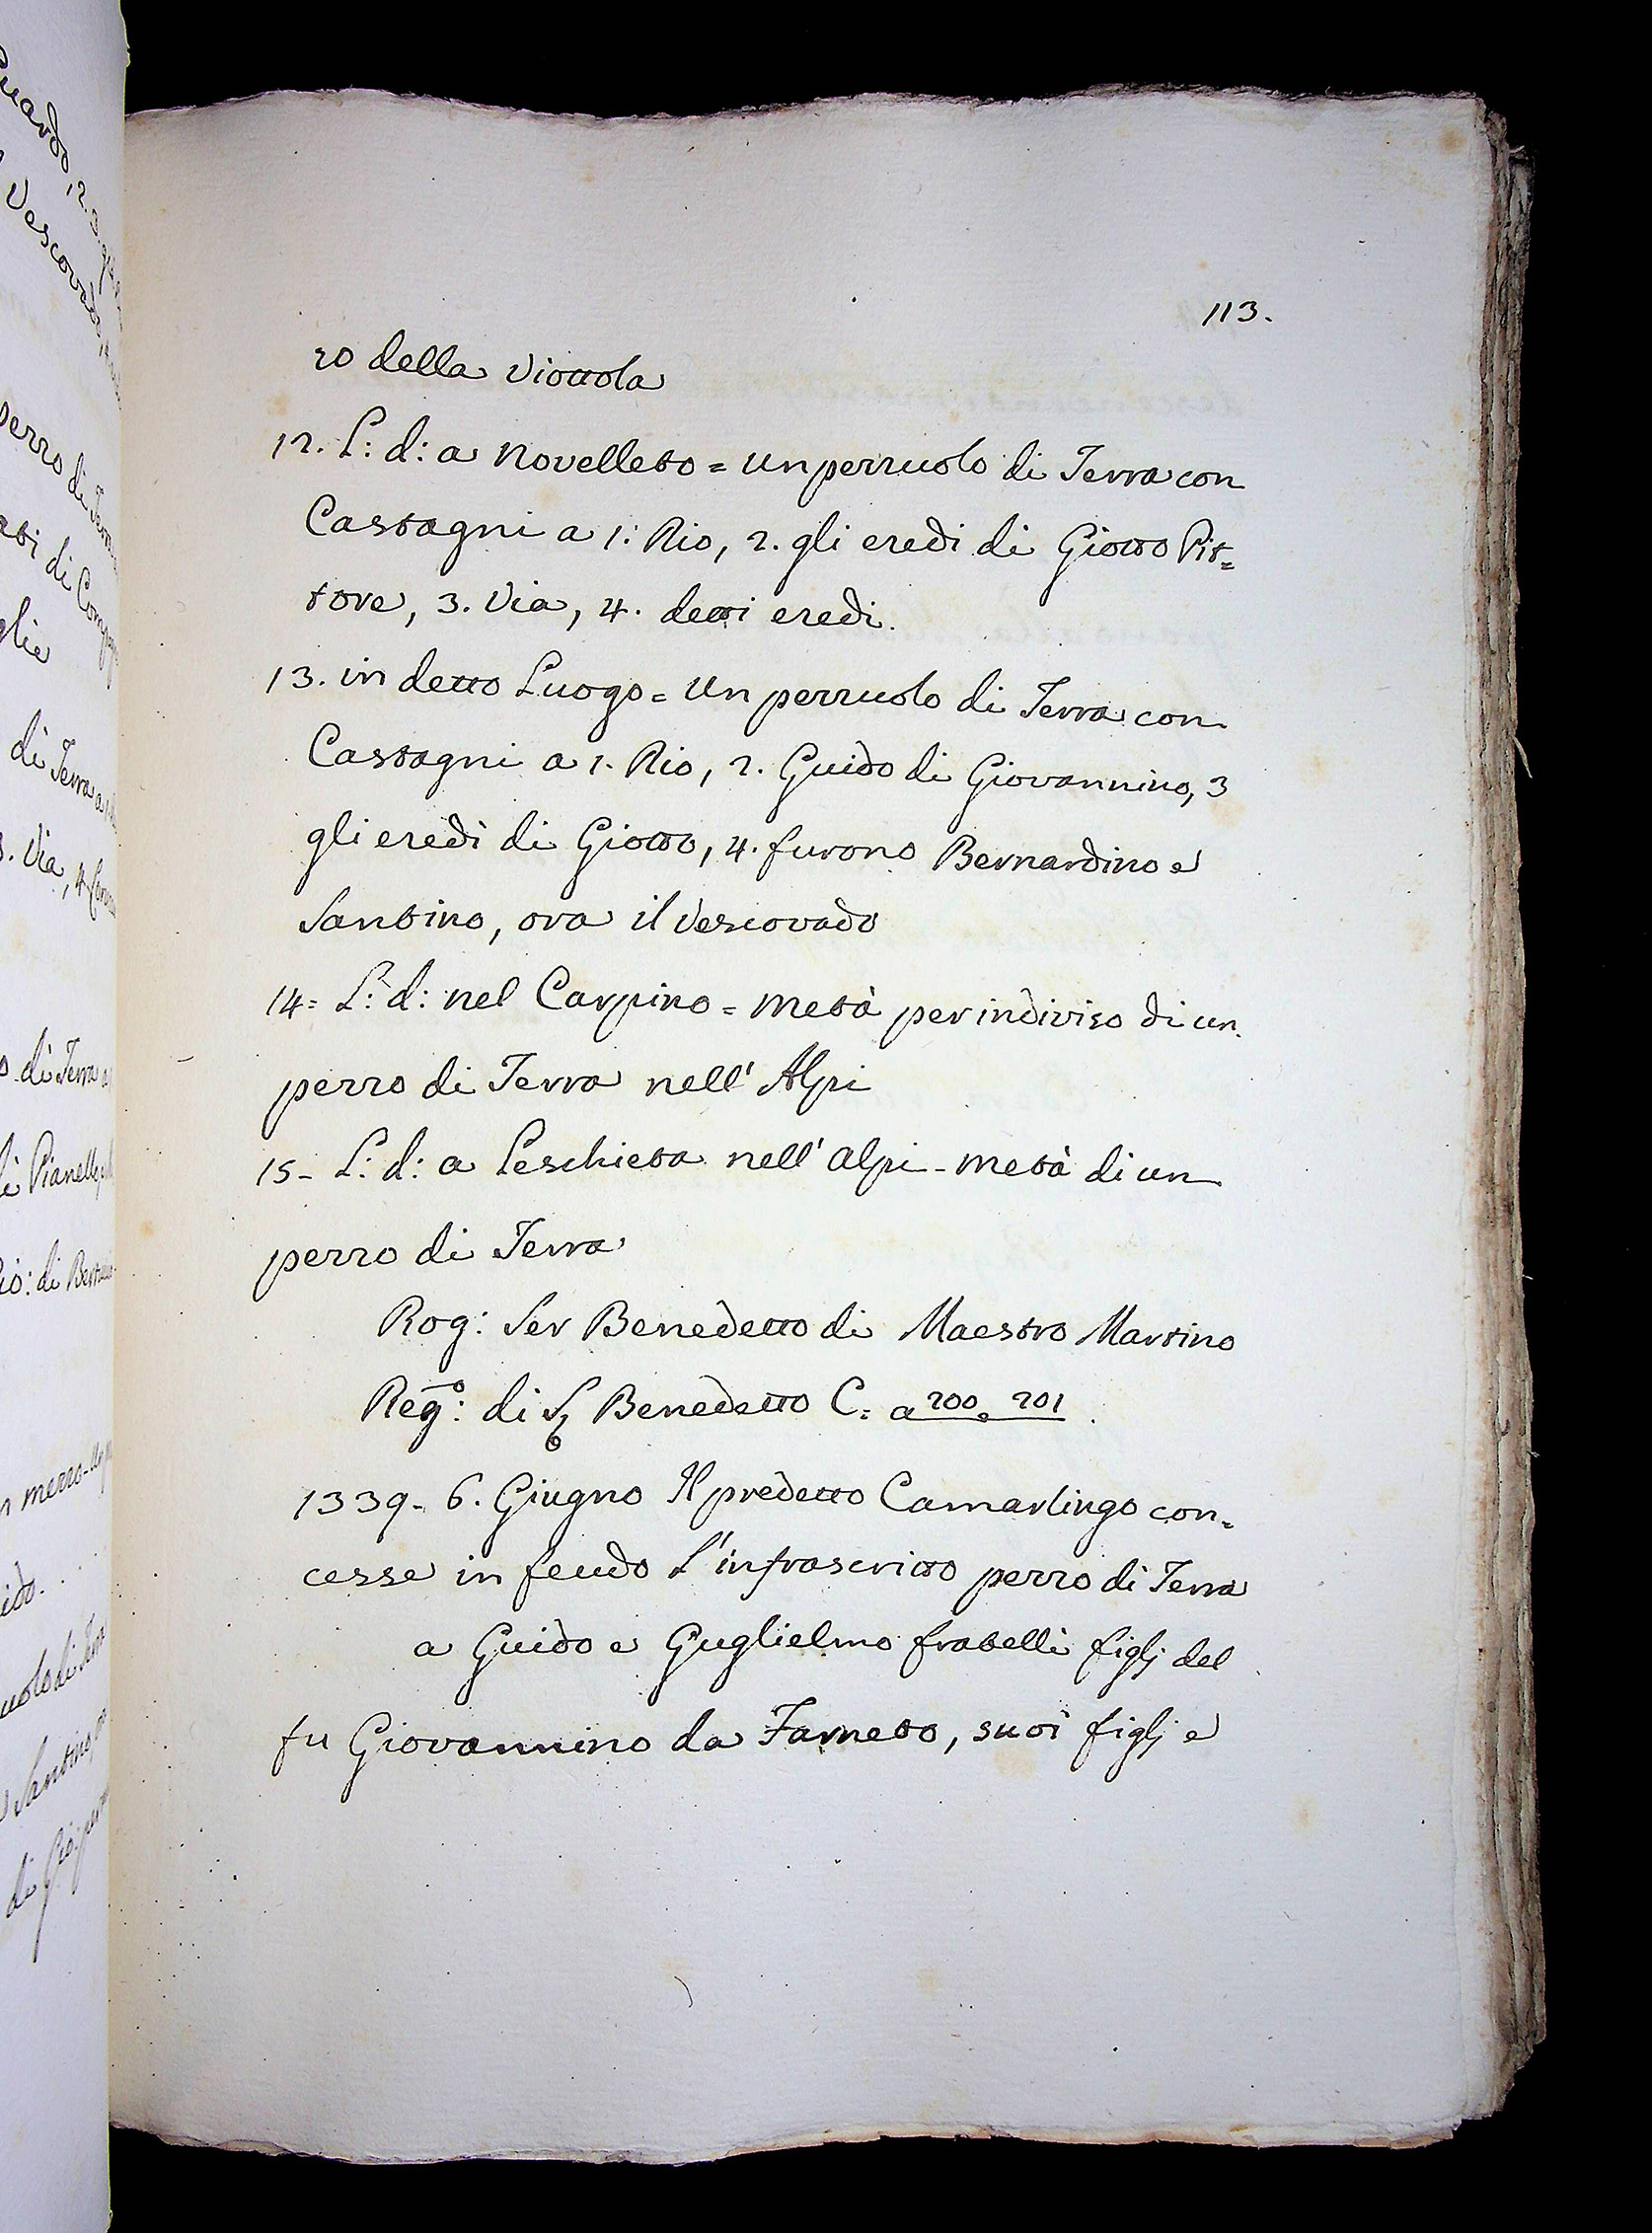 113.
zo della Viottola
12. L: d: a Novelleto = un pezzuolo di Terra con
Castagni a 1: Rio, 2. gli eredi di Giotto Pit=
tore, 3. Via, 4. detti eredi.
13. in detto Luogo = Un pezzuolo di Terra con
Castagni a 1. Rio, 2. Guido di Giovannino, 3
gli eredi di Giotto, 4. furono Bernardino e
Santino, ora il Vescovado
14= L: d: nel Carpino = metà per indiviso di un
pezzo di Terra nell' Alpi
15- L: d: a Peschieta nell' alpi - metà di un
pezzo di Terra
Rog: Ser Benedetto di Maestro Martino
Reg:o di Sr Benedetto C: a 200 e 201.
1339- 6. Giugno Il predetto Camarlingo con=
cesse in feudo l'infrascritto pezzo di Terra
a Guido e Guglielmo fratelli figlj del
fu Giovannino da Farneto, suoi figlj e